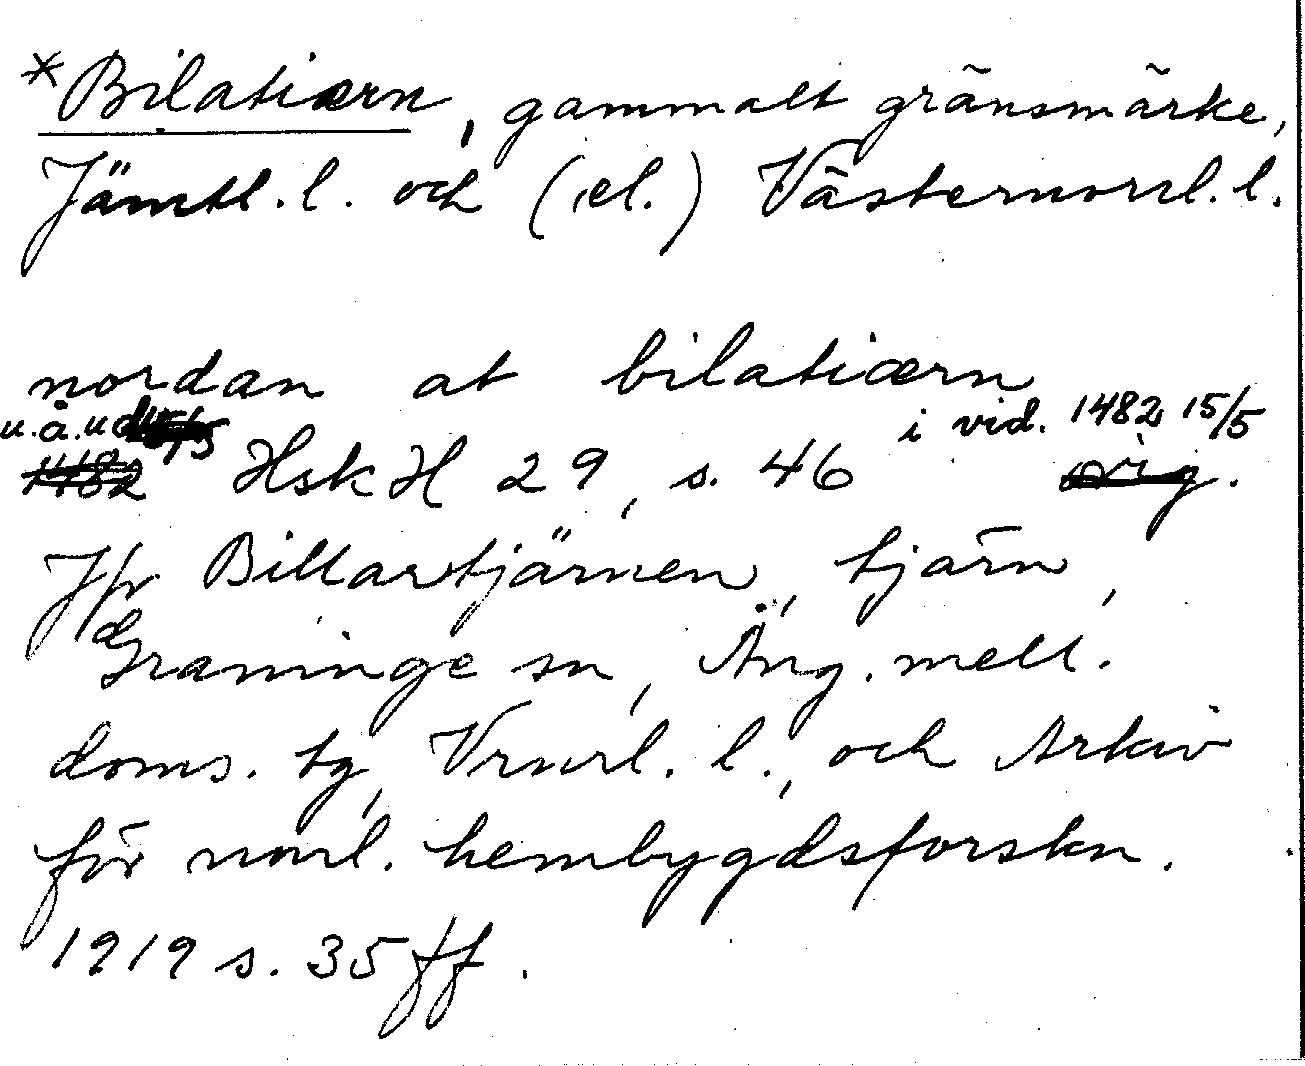 *Bilatiærn, gammalt gränsmärke,
Jämtl. l. och (el.) Västernorrl. l.
nordan at bilatiærn
u.å.u.d. i vid. 1482 15/5
1482 HskH 29, s. 46 orig.
Jfr Billartjärnen, tjärn,
Graninge sn, Ång. mell.
doms. tg, Vrnrl. l., och Arkiv
för norrl. hembygdsforskn.
1919 s. 35 ff.